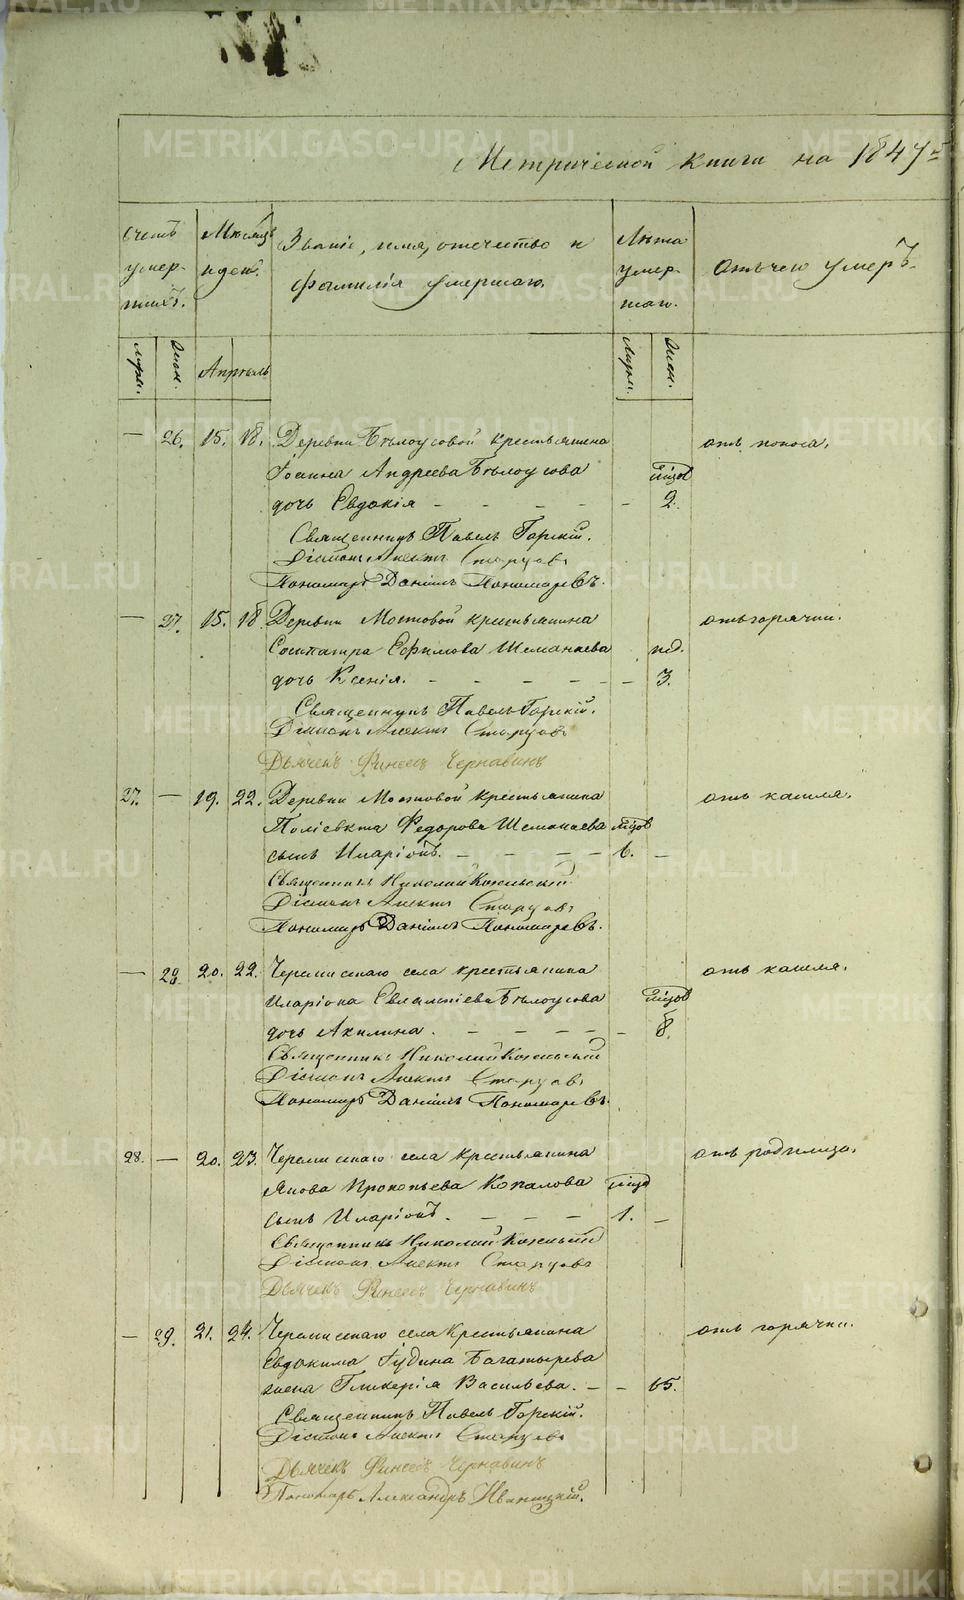 Метрической книги на 1847 г
Счетъ умер-шихъ.
Мѣсяцъ и день.
Званіе, имя, отечество и фамилія умершаго.
Лѣта умер-шаго.
Отъ чего умеръ.
Муж. Жен. Апрѣль Муж. Жен.
— 26. 15. 18. Деревни Бѣлоусовой крестьянина отъ поноса.
Іоанна Андреева Бѣлоусова
дочь Евдокія — — — — — 2.
Священникъ Павелъ Горскій.
Діаконъ Старцовъ
Пономарь Даніилъ Пономаревъ.
— 27. 15. 18. Деревни Мостовой крестьянина отъ горячки.
Сосипатра Ефимова Шеманаева нед.
дочь Ксенія. — — — — — 3.
Священникъ Павелъ Горскій.
Діаконъ Старцовъ
Дьячекъ Финеесъ Чернавинъ
27. — 19. 22. Деревни Мостовой крестьянина отъ кашля.
Поліевкта Федорова Шеманаева
сынъ Иларіонъ. — — — — 6. —
Священникъ Николай
Діаконъ Старцовъ
Пономарь Даніилъ Пономаревъ.
— 28. 20. 22. Черемисскаго села крестьянина отъ кашля.
Иларіона Евлампіева Бѣлоусова
дочь Акилина. — — — — — 8.
Священникъ Николай
Діаконъ Старцовъ
Пономарь Даніилъ Пономаревъ.
28. — 20. 23. Черемисскаго села крестьянина отъ родимца.
Якова Прокопьева Копалова
сынъ Иларіонъ. — — — 1. —
Священникъ Николай
Діаконъ Старцовъ
Дьячекъ Финеесъ Чернавинъ
— 29. 21. 24. Черемисскаго села крестьянина отъ горячки.
Евдокима Іудина Багатырева
жена Гликерія Васильева. — — 65.
Священникъ Павелъ Горскій.
Діаконъ Старцовъ
Дьячекъ Финеесъ Чернавинъ
Пономарь Александръ Иваницкій.
METRIKI.GASO-URAL.RU